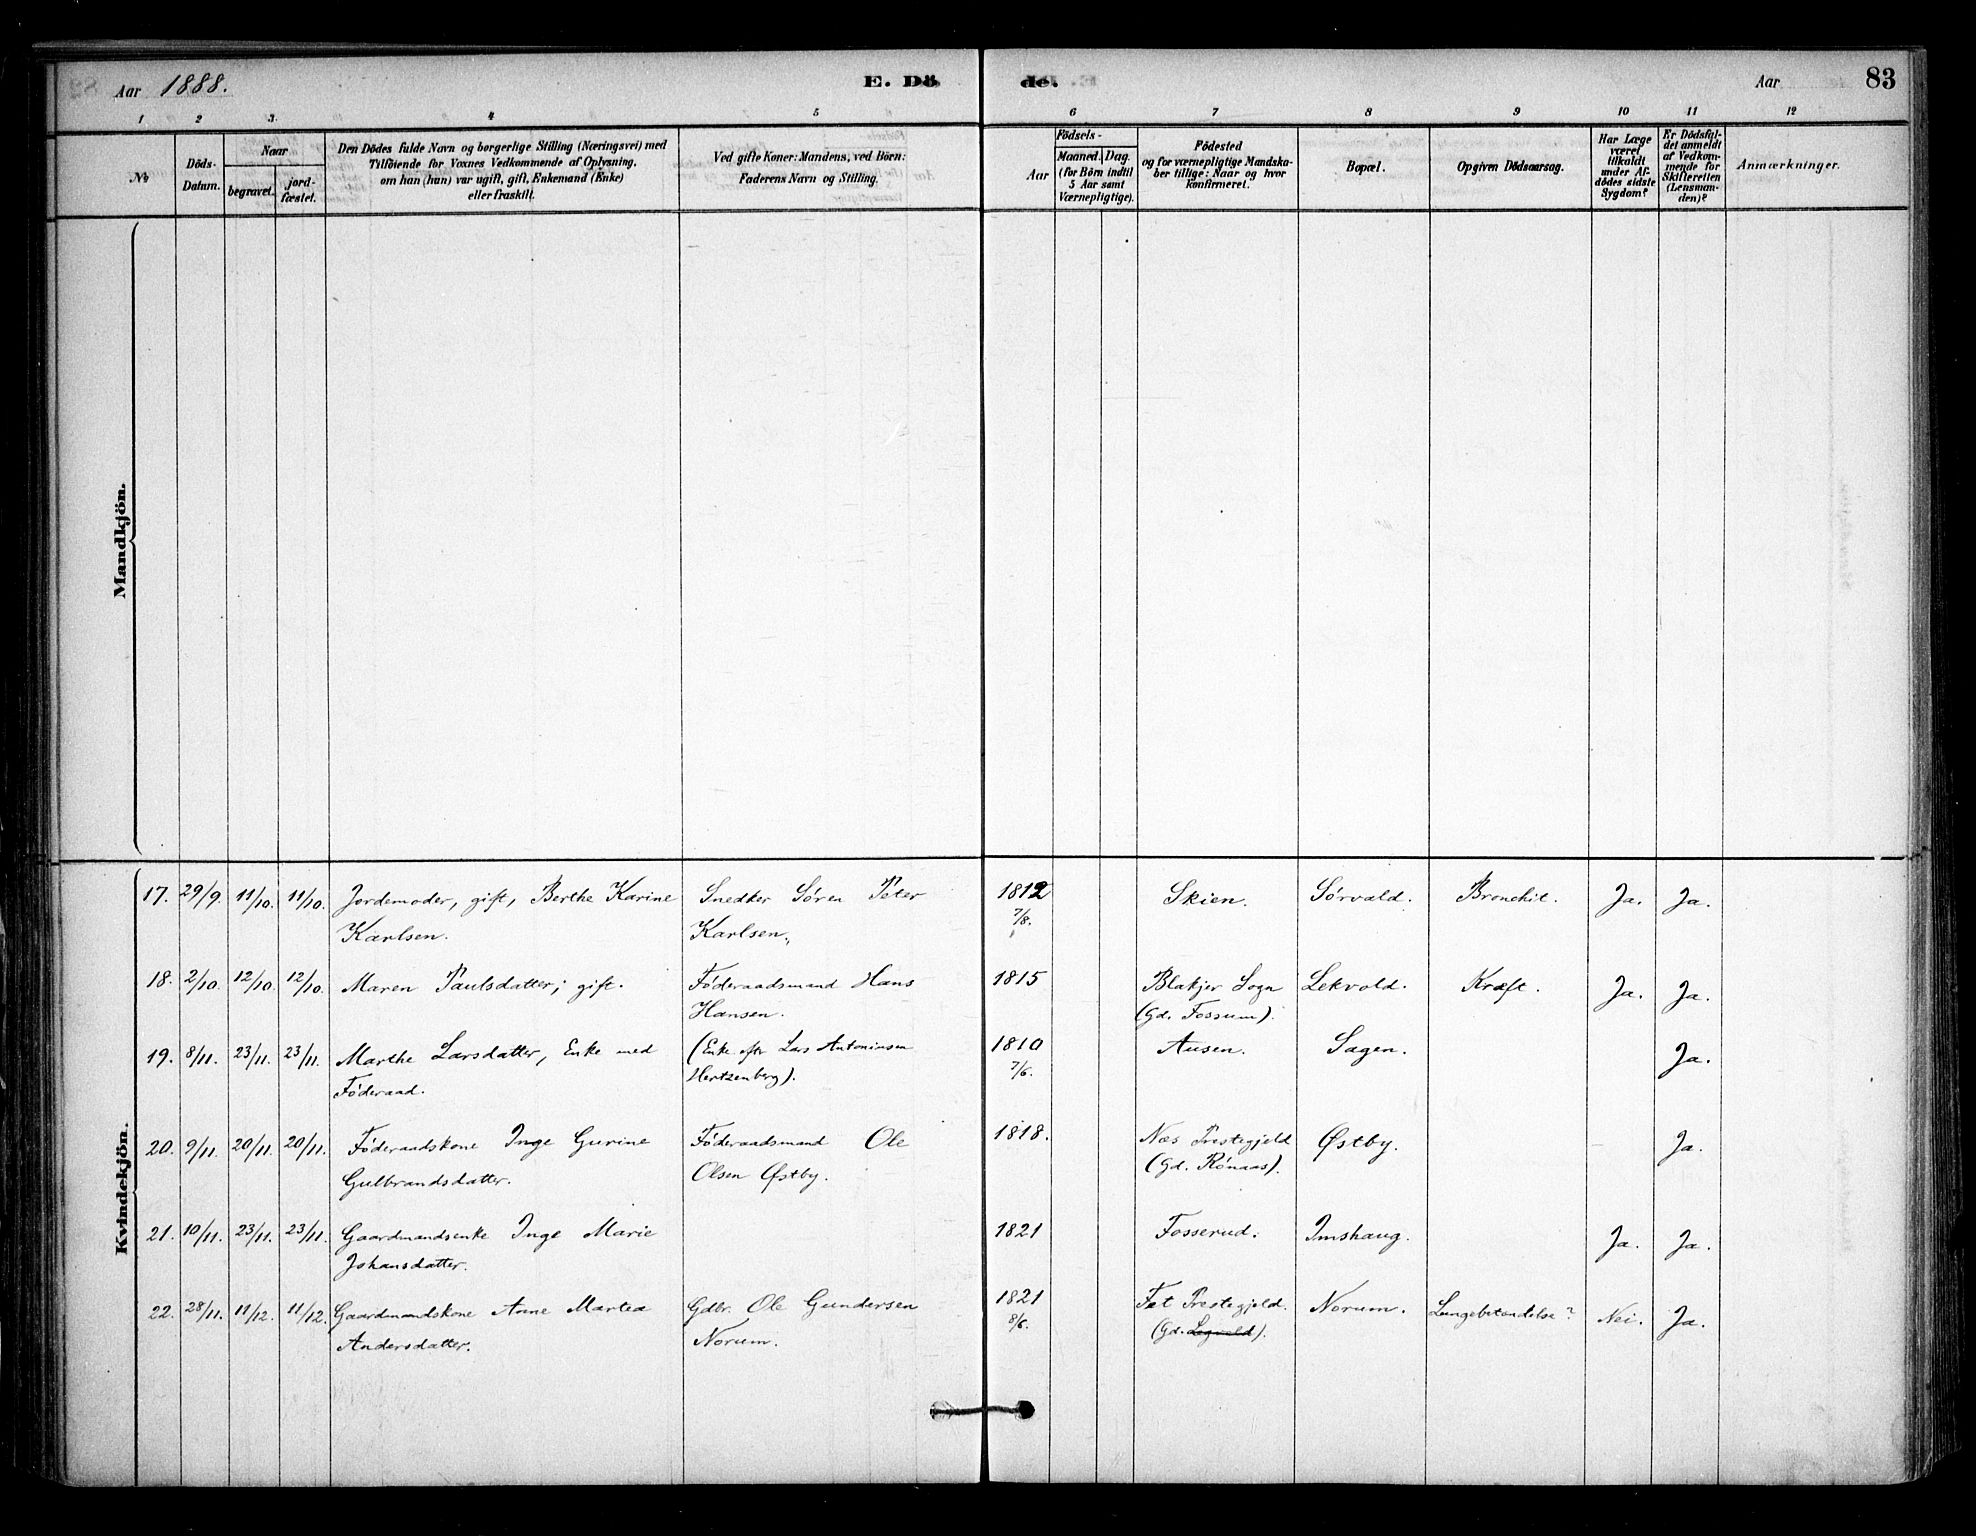 Aar 1888.
E. Dö
de.
Aar
83
1 2 3. 4 5 6 7 8 9 10 11 12
№
Döds-
Datum.
Naar
begravet.
jord-
fæstet.
Den Dödes fulde Navn og borgerlige Stilling (Næringsvei) med
Tilföiende for Voxnes Vedkommende af Oplysning,
om han (hun) var ugift, gift, Enkemand (Enke)
eller fraskilt.
Ved gifte Koner: Mandens, ved Börn:
Faderens Navn og Stilling.
Aar
Födsels-
Maaned. Dag.
(for Börn indtil
5 Aar samt
Værnepligtige).
Födested
og for værnepligtige Mandska-
ber tillige: Naar og hvor
konfirmeret.
Bopæl.
Opgiven Dödsaarsag.
Har Læge
været
tilkaldt
under Af-
dödes sidste
Sygdom?
Er Dödsfal-
det anmeldt
af Vedkom-
mende for
Skifteretten
(Lensman-
den)?
Anmærkninger.
Mandkjön.
Kvindekjön.
17. 29/9. 11/10. 11/10. Jordemoder, gift, Berthe Karine Snedker Sören Peter 1812 Skien. Sørvald. Bronchit. Ja. Ja.
Karlsen. Karlsen. 7/8.
18. 2/10. 12/10. 12/10. Maren Paulsdatter; gift. Føderaadsmand Hans 1815 Blakjer Sogn Lekvold. Kræft. Ja. Ja.
Hansen. (Gd. Fossum).
19. 8/11. 23/11. 23/11. Marthe Larsdatter, Enke med (Enke efter Lars Antoniusen 1810 Ausen. Sagen. Ja.
Føderaad. Hertzenberg). 7/6.
20. 9/11. 20/11. 20/11. Føderaadskone Inge Gurine Føderaadsmand Ole 1818. Næs Prestegjeld Østby. Ja.
Gulbrandsdatter. Olsen Østby. (Gd. Rønaas).
21. 10/11. 23/11. 23/11. Gaardmandsenke Inge Marie 1821 Fosserud. Imshaug. Ja. Ja.
Johansdatter.
22. 28/11. 11/12. 11/12. Gaardmandskone Anne Martea Gdbr. Ole Gundersen 1821 Fet Prestegjeld. Norum. Lungebetændelse? Nei. Ja.
Andersdatter. Norum. 8/6. (Gd. Legvold).